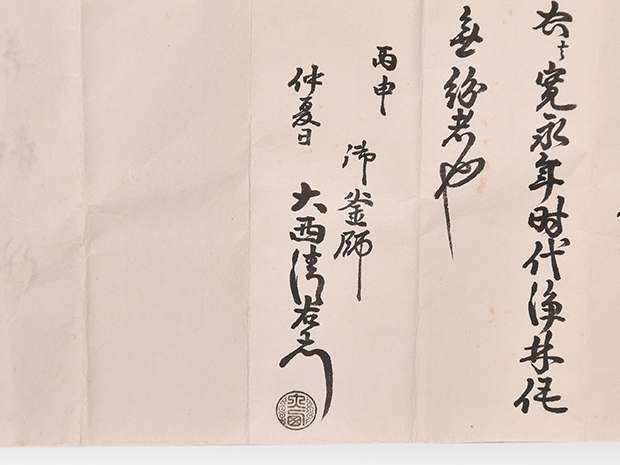 右者寛永年时代浄林作
無紛者也
丙申
仲夏日
御釜師
大西清右衛門